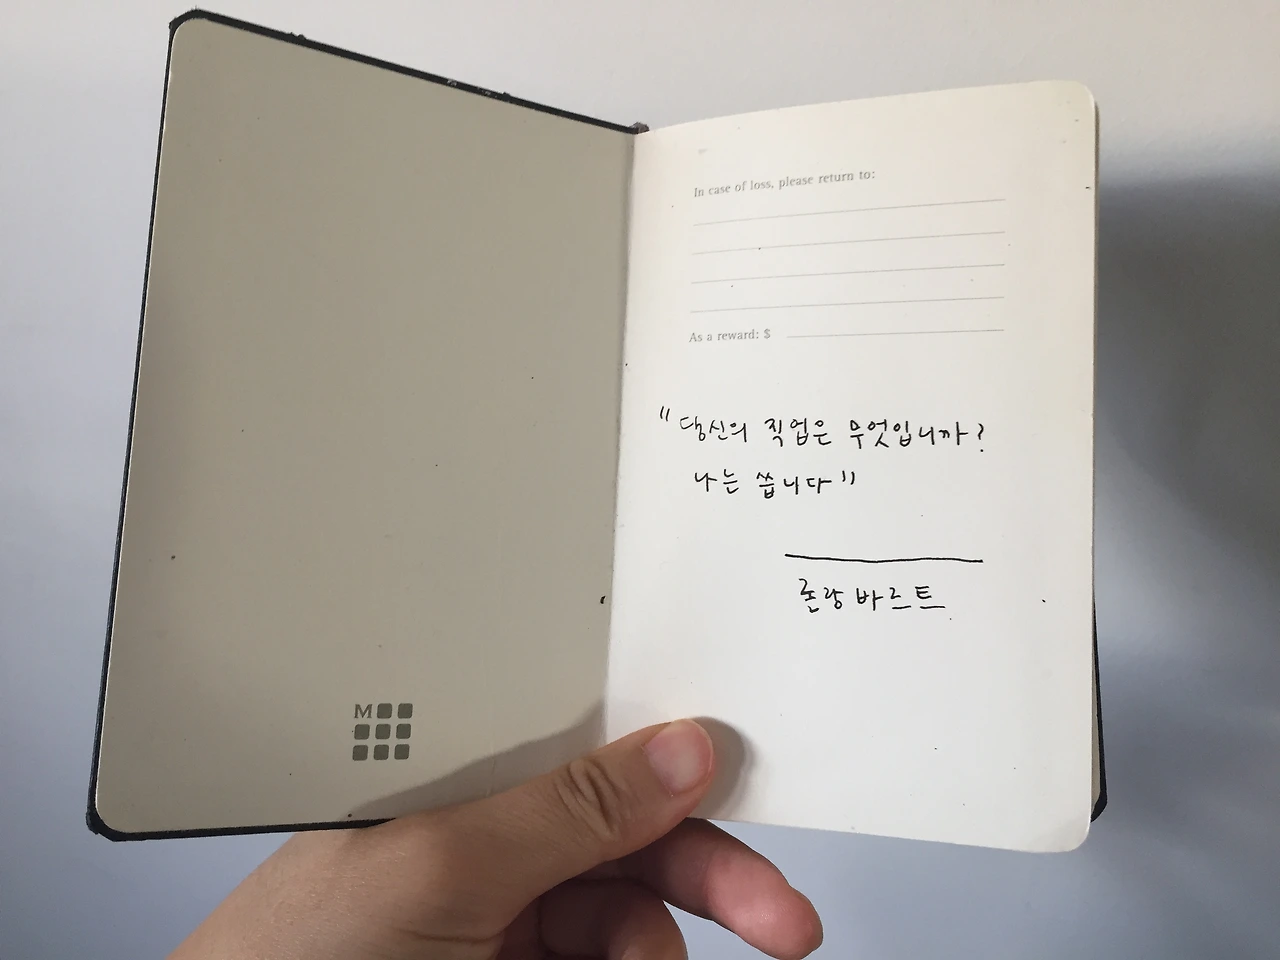 M
In case of loss, please return to:
As a reward: $
"당신의 직업은 무엇입니까?
나는 씁니다"
롤랑 바르트